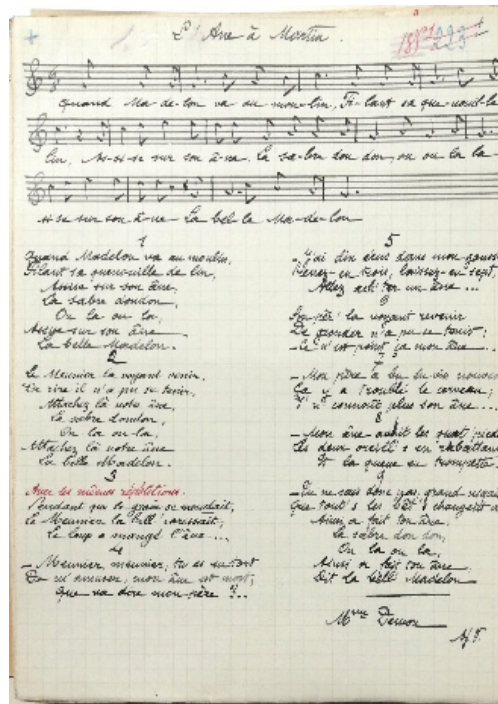 L'Ane à Martin.
223
Quand Ma-de-lon va au mou-lin, Fi-lant sa que-nouil-le
lin, As-si-se sur son â-ne. La sa-bre don don, on ou la la
si-se sur son â-ne La bel-le Ma-de-lon
1
Quand Madelon va au moulin,
Filant sa quenouille de lin,
Assise sur son âne,
La sabre dondon,
Ou la ou la,
Assise sur son âne
La belle Madelon.
2
Le Meunier la voyant venir,
De rire il n'a pu se tenir,
Attachez là votre âne,
La sabre dondon,
Ou la ou la,
Attachez là votre âne
La belle Madelon.
3
Avec les mêmes répétitions.
Pendant que le grain se moudait,
Le Meunier la bell' caressait;
Le loup a mangé l'âne...
4
— Meunier, meunier, tu as eu tort
De m'amuser, mon âne est mort;
Que va dire mon père ?..
5
— J'ai dix écus dans mon
Prenez-en trois, laissez-en sept,
Allez ach'ter un âne...
6
Son pèr' la voyant revenir
De gronder n'a pu se tenir:
— Ce n'est point ça mon âne...
7
— Mon père a bu du vin nouveau
Ça y a troublé le cerveau;
I' n' connaît plus son âne...
8
— Mon âne avait les quat' pieds
Les deux oreill's en rabattant
Et la queue en trompette.
9
— Tu ne sais donc pas, grand
Que tout's les bêt's changent
Ainsi a fait ton âne.
La sabre don don,
Ou la ou la,
Ainsi a fait ton âne
Dit la bell' Madelon
Mme